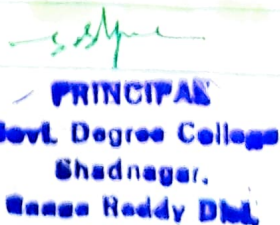 PRINCIPAL
Govt. Degree College
Shadnagar,
Reddy Dist.